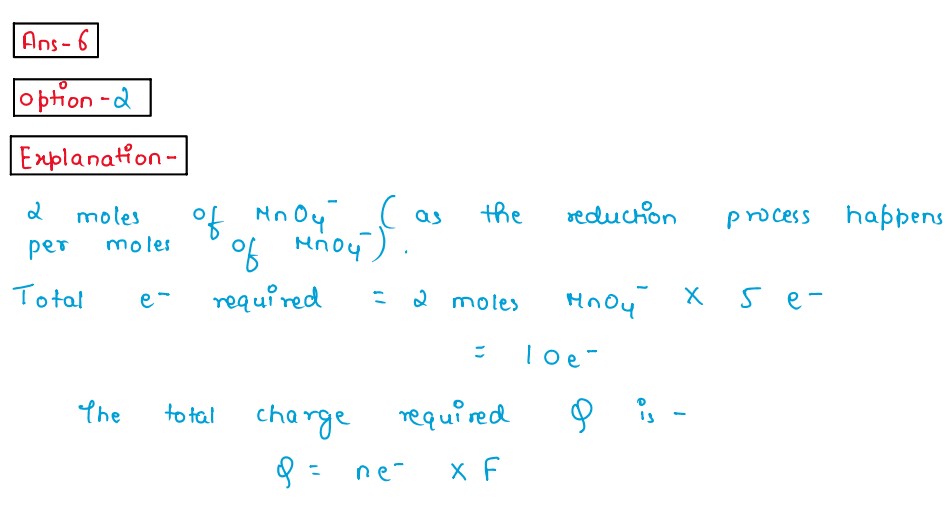 Ans-6
option-2
Explanation-
2 moles of MnO₄⁻ (as the reduction process happens
per moles of MnO₄⁻).
Total e⁻ required = 2 moles MnO₄⁻ × 5 e⁻
= 10e⁻
The total charge required Q is -
Q = ne⁻ × F